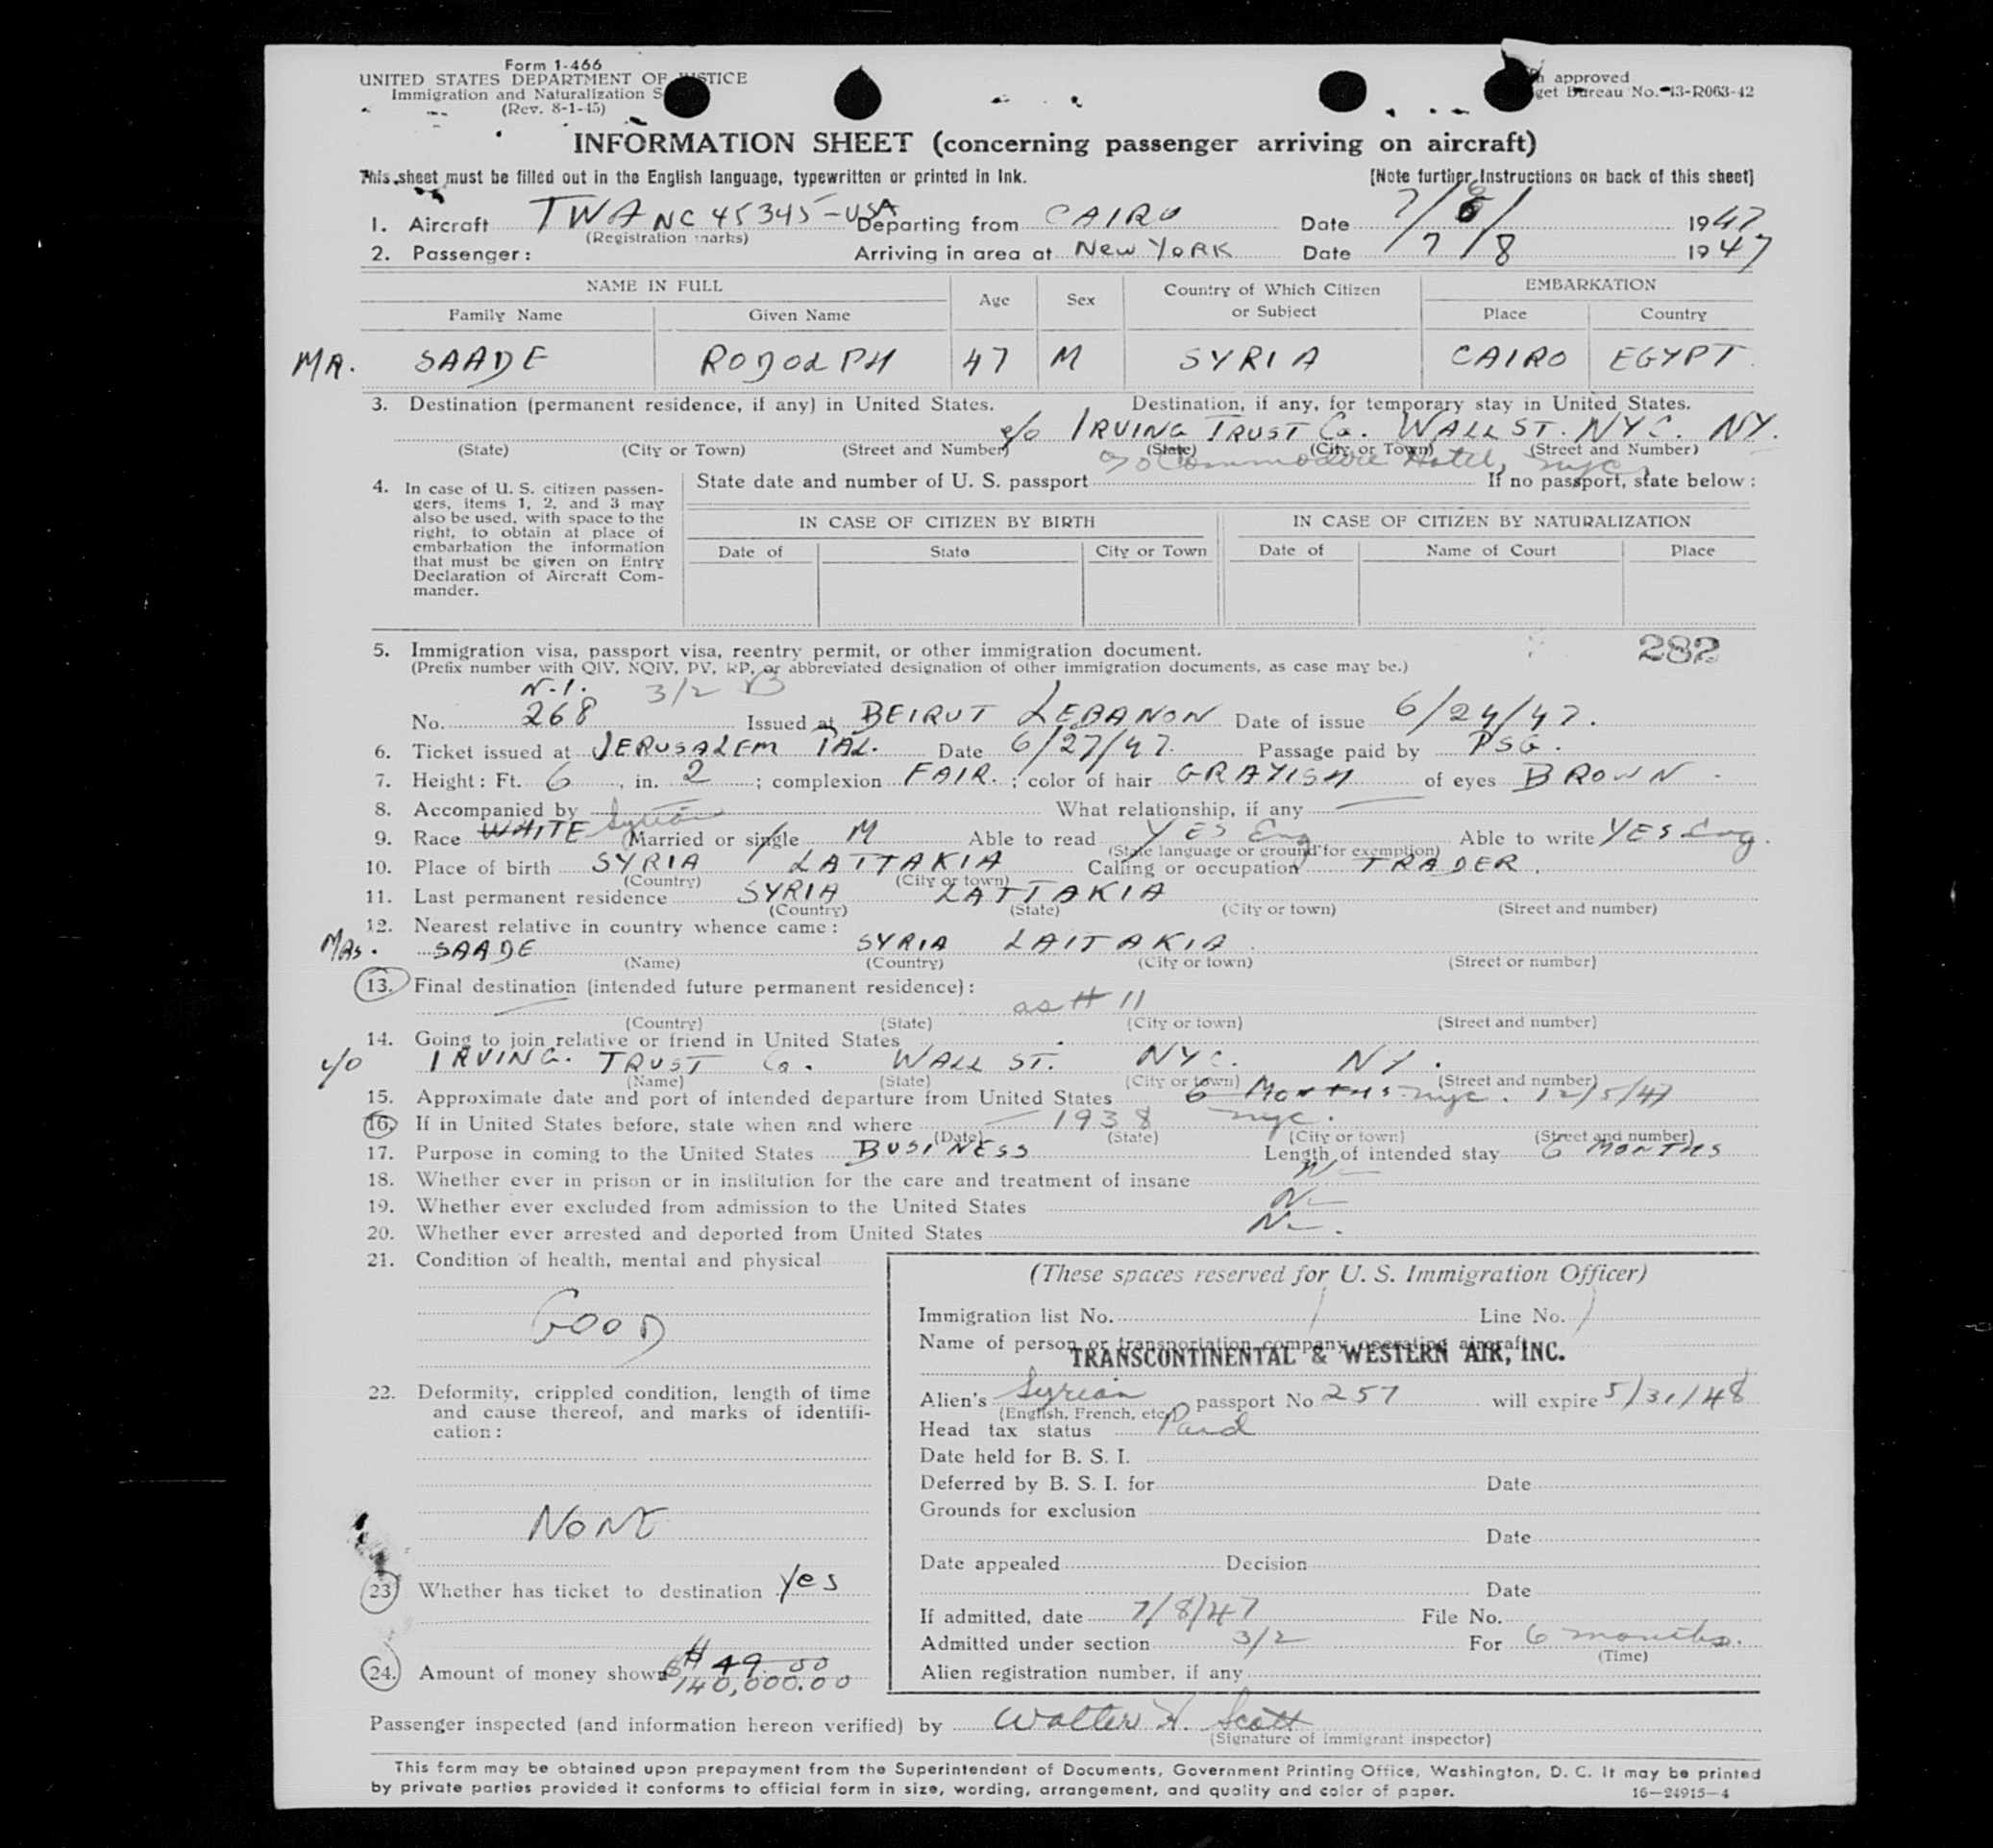 Form 1-466
UNITED STATES DEPARTMENT OF JUSTICE
Immigration and Naturalization S
(Rev. 8-1-45)
approved
get Bureau No. 43-R063-42
INFORMATION SHEET (concerning passenger arriving on aircraft)
This sheet must be filled out in the English language, typewritten or printed in Ink. [Note further Instructions on back of this sheet]
1. Aircraft TWA NC 45345-USA Departing from CAIRO Date 7/6/ 1947
(Registration marks)
2. Passenger: Arriving in area at New YORK Date 7/8 1947
NAME IN FULL Age Sex Country of Which Citizen or Subject EMBARKATION
Family Name Given Name Place Country
MR. SAADE RODOLPH 47 M SYRIA CAIRO EGYPT
3. Destination (permanent residence, if any) in United States. Destination, if any, for temporary stay in United States.
c/o IRVING TRUST Co. WALL ST. NYC. NY.
(State) (City or Town) (Street and Number) (State) (City or Town) (Street and Number)
c/o Commodore Hotel, nyc
4. In case of U. S. citizen passen-
gers, items 1, 2, and 3 may
also be used, with space to the
right, to obtain at place of
embarkation the information
that must be given on Entry
Declaration of Aircraft Com-
mander.
State date and number of U. S. passport If no passport, state below:
IN CASE OF CITIZEN BY BIRTH IN CASE OF CITIZEN BY NATURALIZATION
Date of State City or Town Date of Name of Court Place
282
5. Immigration visa, passport visa, reentry permit, or other immigration document.
(Prefix number with QIV, NQIV, PV, RP, or abbreviated designation of other immigration documents, as case may be.)
N.I. 3/2 B
No. 268 Issued at BEIRUT LEBANON Date of issue 6/24/47.
6. Ticket issued at JERUSALEM PAL. Date 6/27/47. Passage paid by PSG.
7. Height: Ft. 6, in. 2; complexion FAIR.; color of hair GRAYISH of eyes BROWN
8. Accompanied by What relationship, if any
9. Race WHITE Syrian Married or single M Able to read YES Eng Able to write YES Eng.
(State language or ground for exemption)
10. Place of birth SYRIA LATTAKIA Calling or occupation TRADER.
(Country) (City or town)
11. Last permanent residence SYRIA LATTAKIA
(Country) (State) (City or town) (Street and number)
12. Nearest relative in country whence came:
MRS. SAADE SYRIA LATTAKIA
(Name) (Country) (City or town) (Street or number)
13. Final destination (intended future permanent residence):
as # 11
(Country) (State) (City or town) (Street and number)
14. Going to join relative or friend in United States
c/o IRVING. TRUST Co. WALL ST. NYC. NY.
(Name) (State) (City or town) (Street and number)
15. Approximate date and port of intended departure from United States 6 MONTHS nyc. 12/5/47
16. If in United States before, state when and where 1938 nyc.
(Date) (State) (City or town) (Street and number)
17. Purpose in coming to the United States BUSINESS Length of intended stay 6 MONTHS
18. Whether ever in prison or in institution for the care and treatment of insane No
19. Whether ever excluded from admission to the United States No
20. Whether ever arrested and deported from United States No.
21. Condition of health, mental and physical
GOOD
22. Deformity, crippled condition, length of time
and cause thereof, and marks of identifi-
cation:
NONE
23. Whether has ticket to destination Yes
24. Amount of money shown $ 49.00
$140,000.00
(These spaces reserved for U. S. Immigration Officer)
Immigration list No. 1 Line No. 1
Name of person or transportation company operating aircraft
TRANSCONTINENTAL & WESTERN AIR, INC.
Alien's Syrian passport No 257 will expire 5/31/48
(English, French, etc.)
Head tax status Paid
Date held for B. S. I.
Deferred by B. S. I. for Date
Grounds for exclusion
Date
Date appealed Decision
Date
If admitted, date 7/8/47 File No.
Admitted under section 3/2 For 6 months.
(Time)
Alien registration number, if any
Passenger inspected (and information hereon verified) by Walter H. Scott
(Signature of immigrant inspector)
This form may be obtained upon prepayment from the Superintendent of Documents, Government Printing Office, Washington, D. C. It may be printed
by private parties provided it conforms to official form in size, wording, arrangement, and quality and color of paper. 16—24915-4